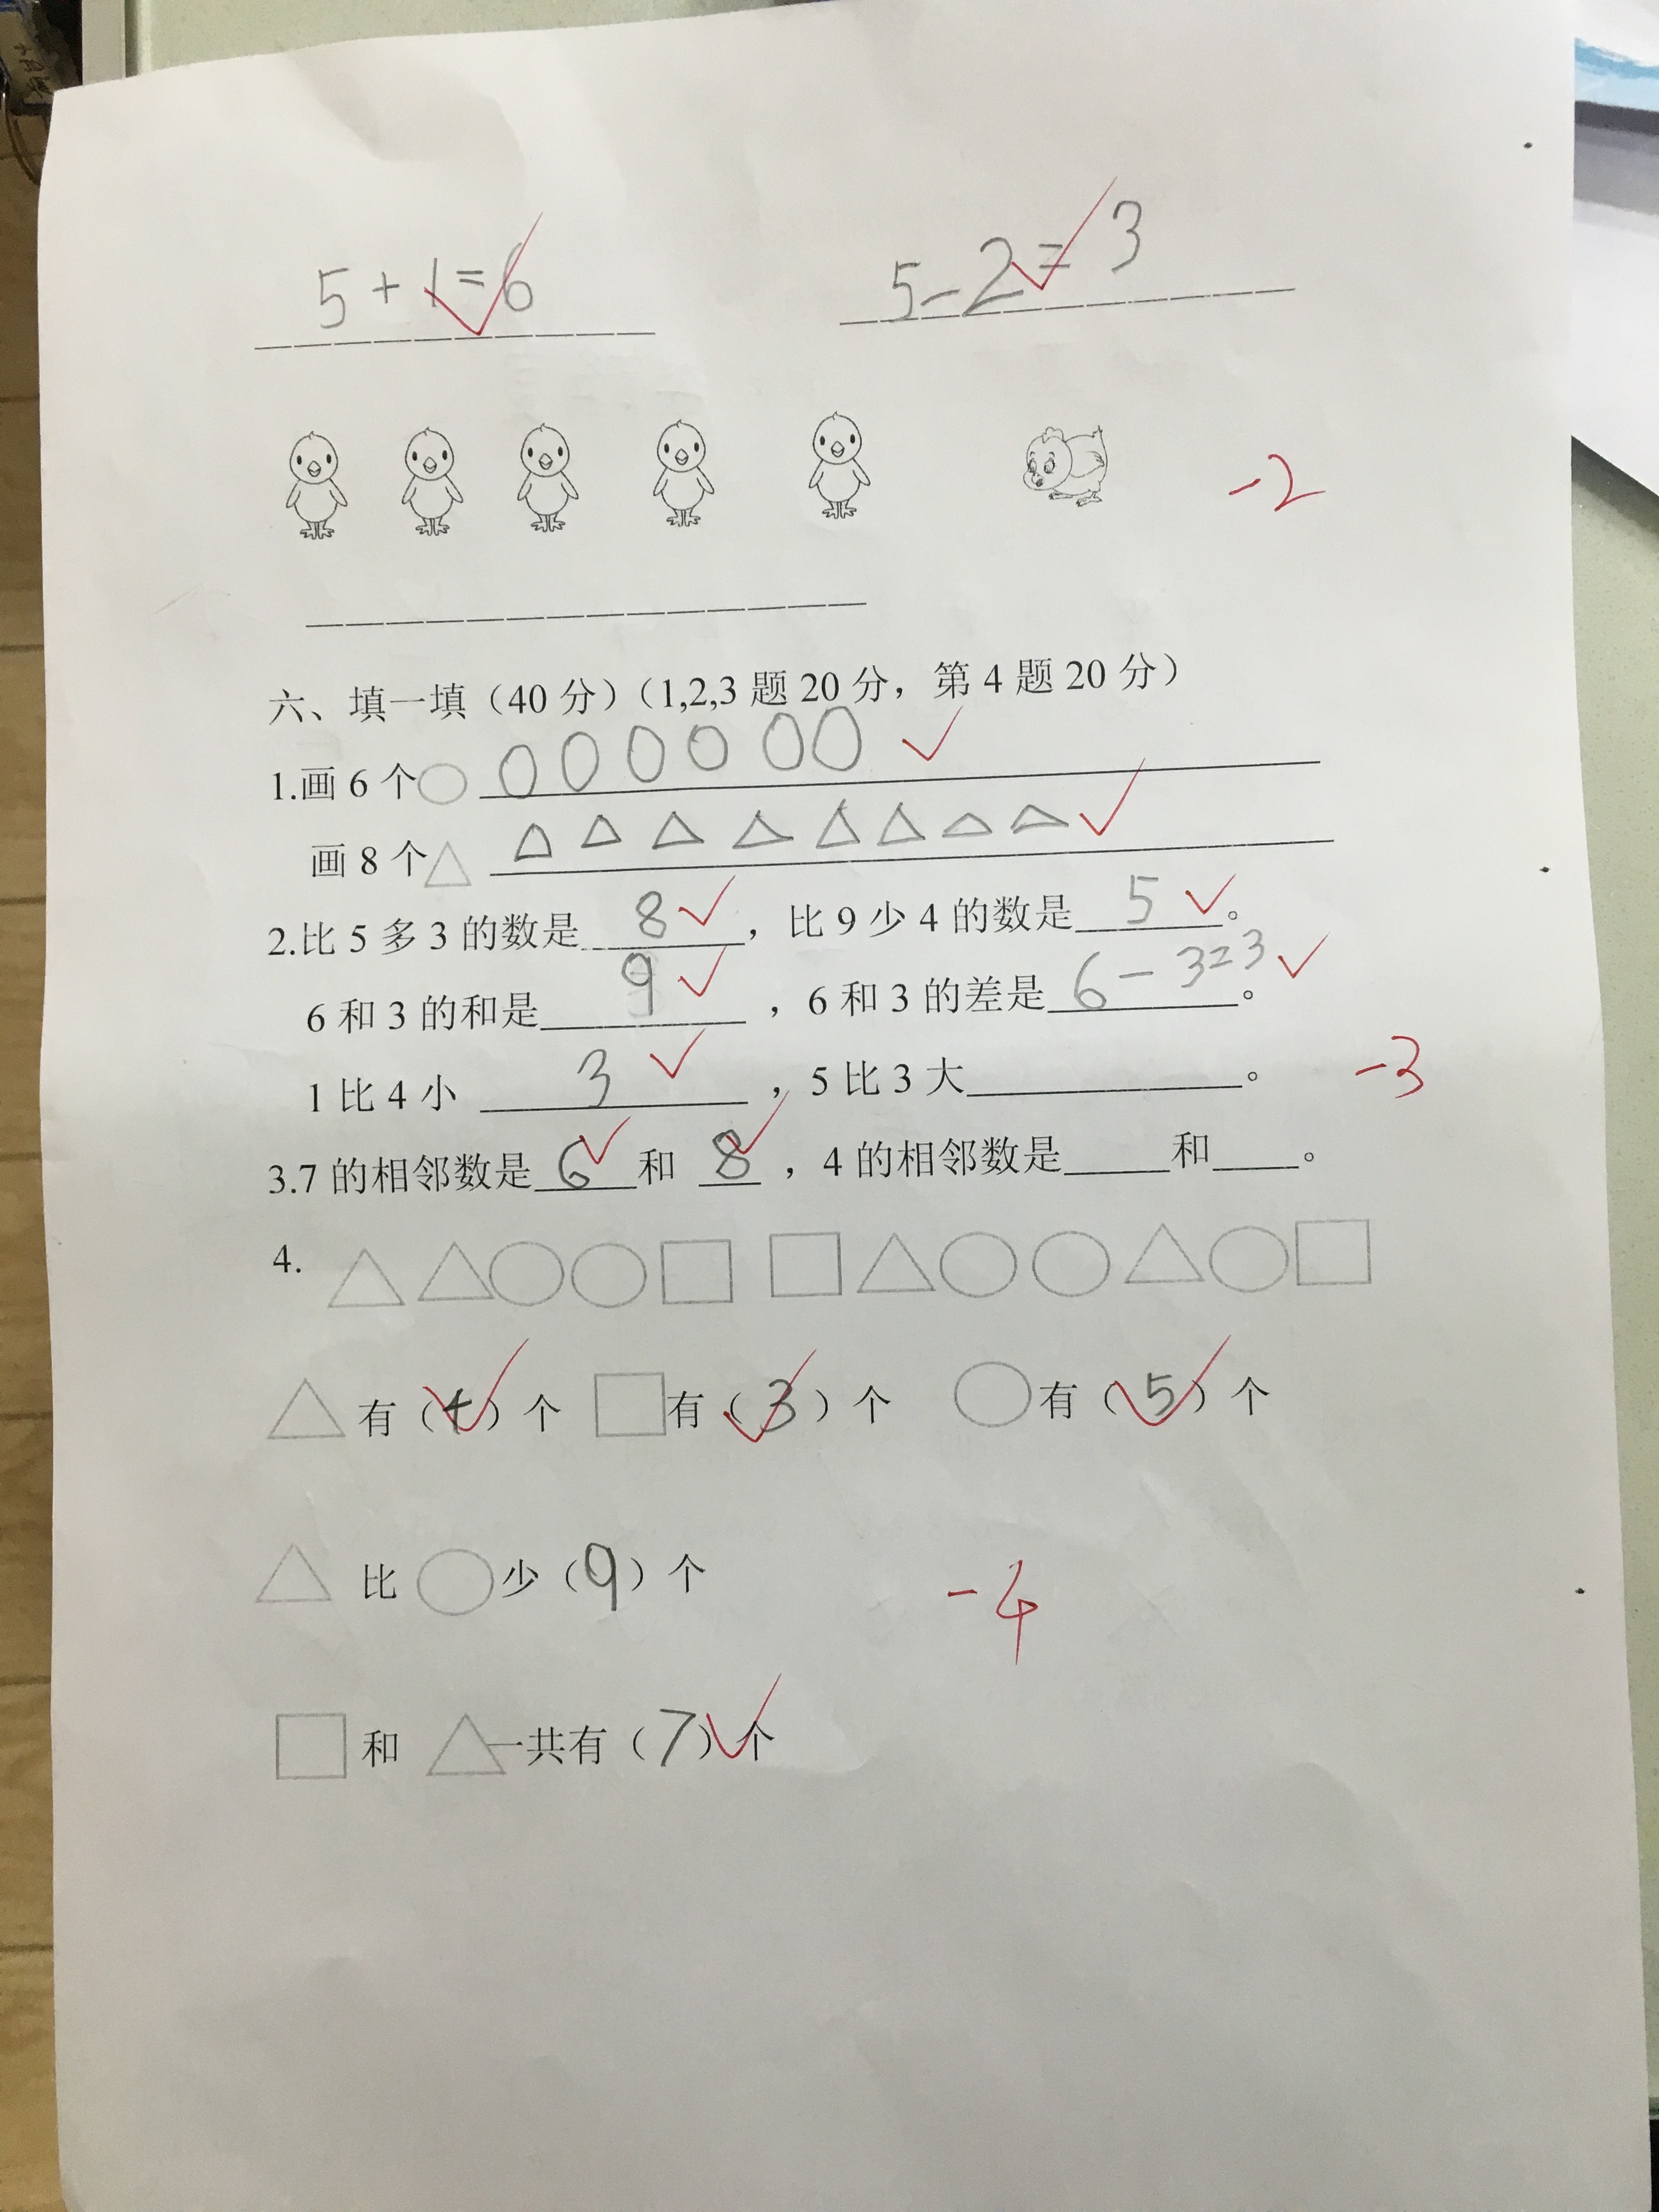 5+1=6 5-2=3
-2
六、填一填（40分）（1,2,3题20分，第4题20分）
1.画6个
画8个
2.比5多3的数是 8 ，比9少4的数是 5 。
6和3的和是 9 ，6和3的差是 6-3=3 。
1比4小 3 ，5比3大 。 -3
3.7的相邻数是 6 和 8 ，4的相邻数是 和 。
4.
有（4）个 有（3）个 有（5）个
比 少（9）个 -4
和 一共有（7）个